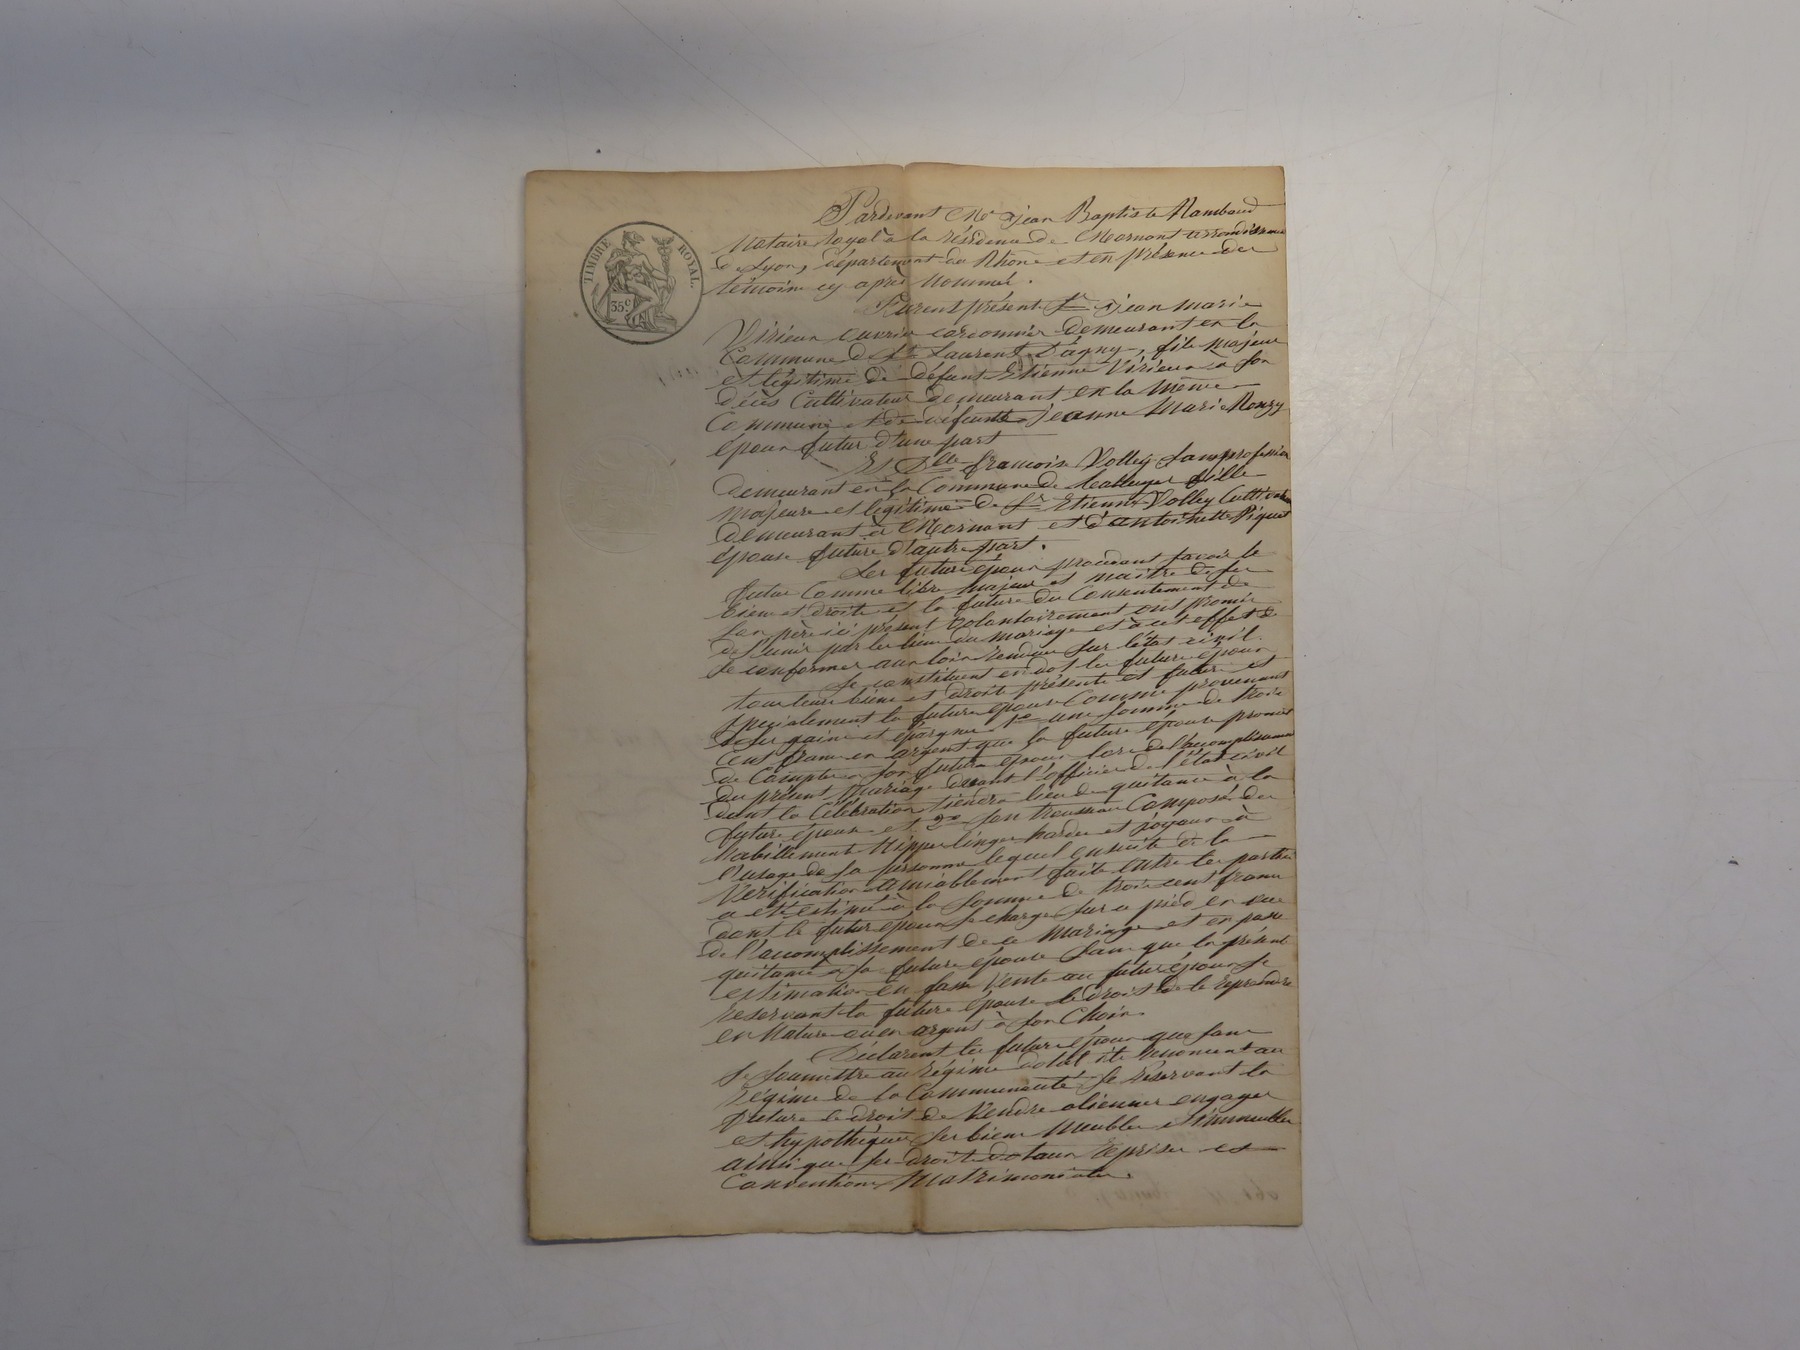 TIMBRE ROYAL
35c
Pardevant Me Jean Baptiste Rambaud
Notaire royal à la résidence de Mornant arrondissement
de Lyon, département du Rhône et en présence des
témoins cy après nommés.
Furent présents Sr Jean Marie
Virieux ouvrier cordonnier demeurant en la
Commune de St Laurent D'agny, fils majeur
et légitime de défunt Etienne Virieux à son
décès Cultivateur demeurant en la même
Commune et de défunte jeanne Marie
époux futur d'une part
Et Dlle françoise Volley Sans profession
demeurant en la Commune de fille
majeure et légitime de Sr Etienne Volley Cultivateur
demeurant à Mornant et d'antoinette Piquet
épouse future d'autre part.
Les futurs époux procédant savoir le
futur Comme libre majeur et maitre de ses
biens et droits et la future du Consentement de
son père ici présent volontairement ont promis
de s'unir par les liens du mariage et à cet effet de
se conformer aux loix rendues sur l'état civil.
Se constituent en dot les futurs époux
tous leurs biens et droits présents et futurs et
spécialement la future épouse Comme provenant
de ses gains et épargnes 1o une somme de trois
cent francs en argent que la future épouse promet
de Compter à son futur époux lors de l'accomplissement
du présent Mariage devant l'officier de l'état civil
dont la Célébration tiendra lieu de quitance à la
future épouse et 2o son trousseau Composé des
habillements Nippes linges hardes et joyaux à
l'usage de sa personne lequel ensuite de la
Vérification amiablement faite entre les parties
a été estimé à la Somme de trois cent francs
dont le futur époux se charge sur ce pied en vue
de l'accomplissement de ce Mariage et en passe
quitance à sa future épouse sans que la présente
estimation en fasse Vente au futur époux se
reservant la future épouse le droit de le reprendre
en Nature ou en argent à son Choix.
Déclarent les futurs époux que sans
se soumettre au régime dotal ils renoncent au
régime de la Communauté Se reservant la
future le droit de Vendre aliener engager
et hypothéquer ses biens Meubles et immeubles
ainsi que ses droits dotaux reprises et
Conventions Matrimoniales